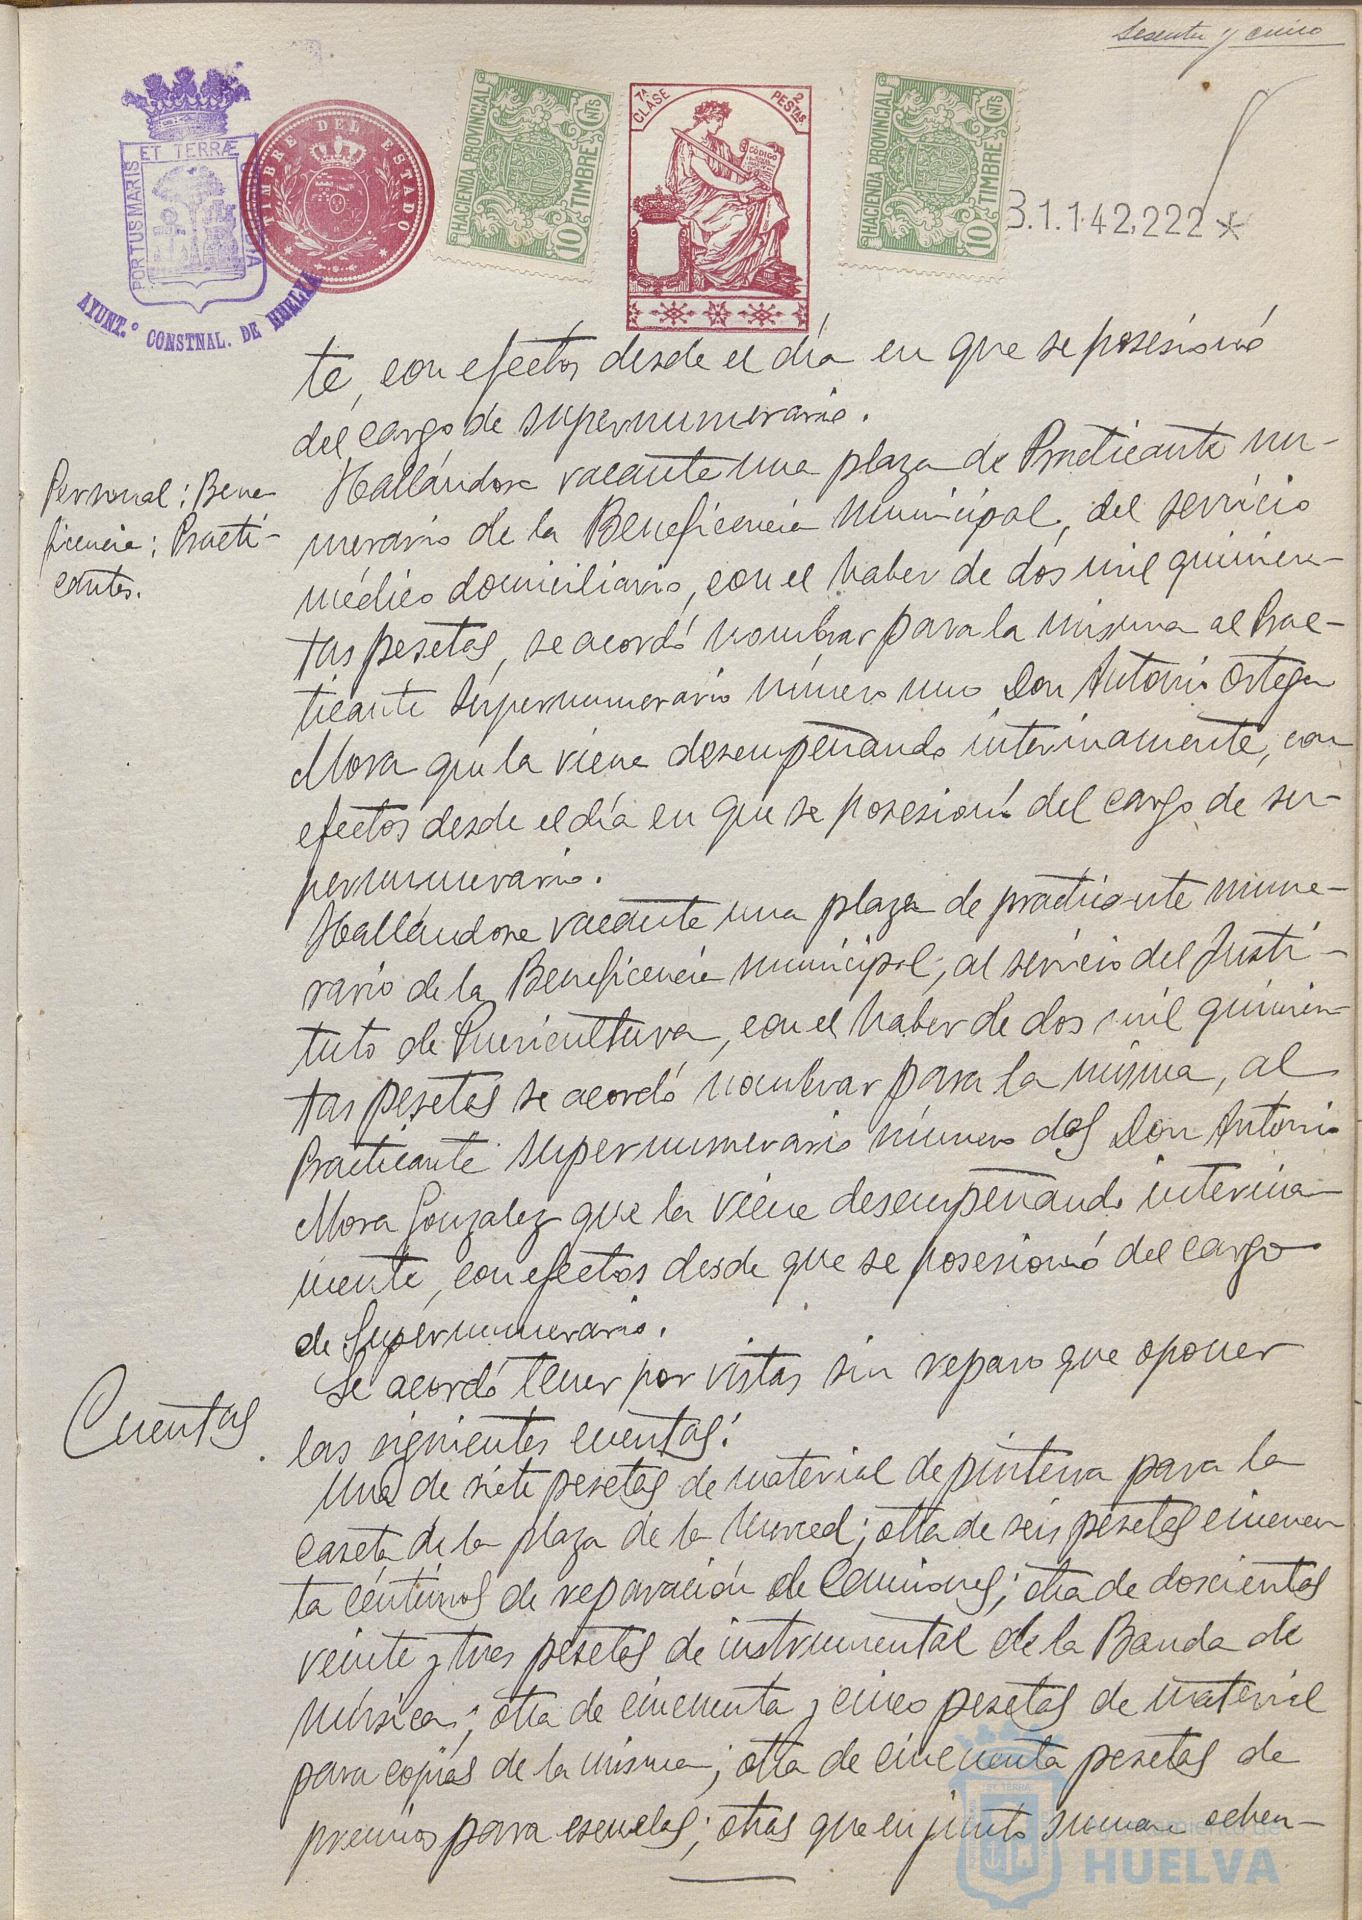 Sesenta y cinco
PORTUS MARIS ET TERRÆ CUSTODIA
AYUNT.º CONSTNAL. DE HUELVA
TIMBRE DEL ESTADO
HACIENDA PROVINCIAL
10 CNTS
TIMBRE
7ª CLASE
2 PESTAS.
CÓDIGO
HACIENDA PROVINCIAL
10 CNTS
TIMBRE
B.1.142,222*
te, con efectos desde el día en que se posesionó
del cargo de supernumerario.
Personal: Bene
ficencia: Practi-
cantes.
Hallándose vacante una plaza de Practicante nu-
merario de la Beneficencia Municipal, del servicio
médico domiciliario, con el haber de dos mil quinien-
tas pesetas, se acordó nombrar para la misma al Prac-
ticante Supernumerario número uno Don Antonio Ortega
Mora que la viene desempeñando interinamente, con
efectos desde el día en que se posesionó del cargo de su-
pernumerario.
Hallándose vacante una plaza de practicante nume-
rario de la Beneficencia municipal, al servicio del Insti-
tuto de Puericultura, con el haber de dos mil quinien-
tas pesetas se acordó nombrar para la misma, al
Practicante supernumerario número dos Don Antonio
Mora Gonzalez que la viene desempeñando interina-
mente, con efectos desde que se posesionó del cargo
de Supernumerario.
Cuentas.
Se acordó tener por vistas sin reparo que oponer
las siguientes cuentas:
Una de siete pesetas de material de pintura para la
caseta de la plaza de la Merced; otra de seis pesetas cincuen
ta céntimos de reparación de Camiones; otra de doscientas
veinte y tres pesetas de instrumental de la Banda de
música; otra de cincuenta y cinco pesetas de material
para copias de la misma; otra de cincuenta pesetas de
premios para escuelas; otras que en junto suman ochen-
Ayuntamiento de
HUELVA